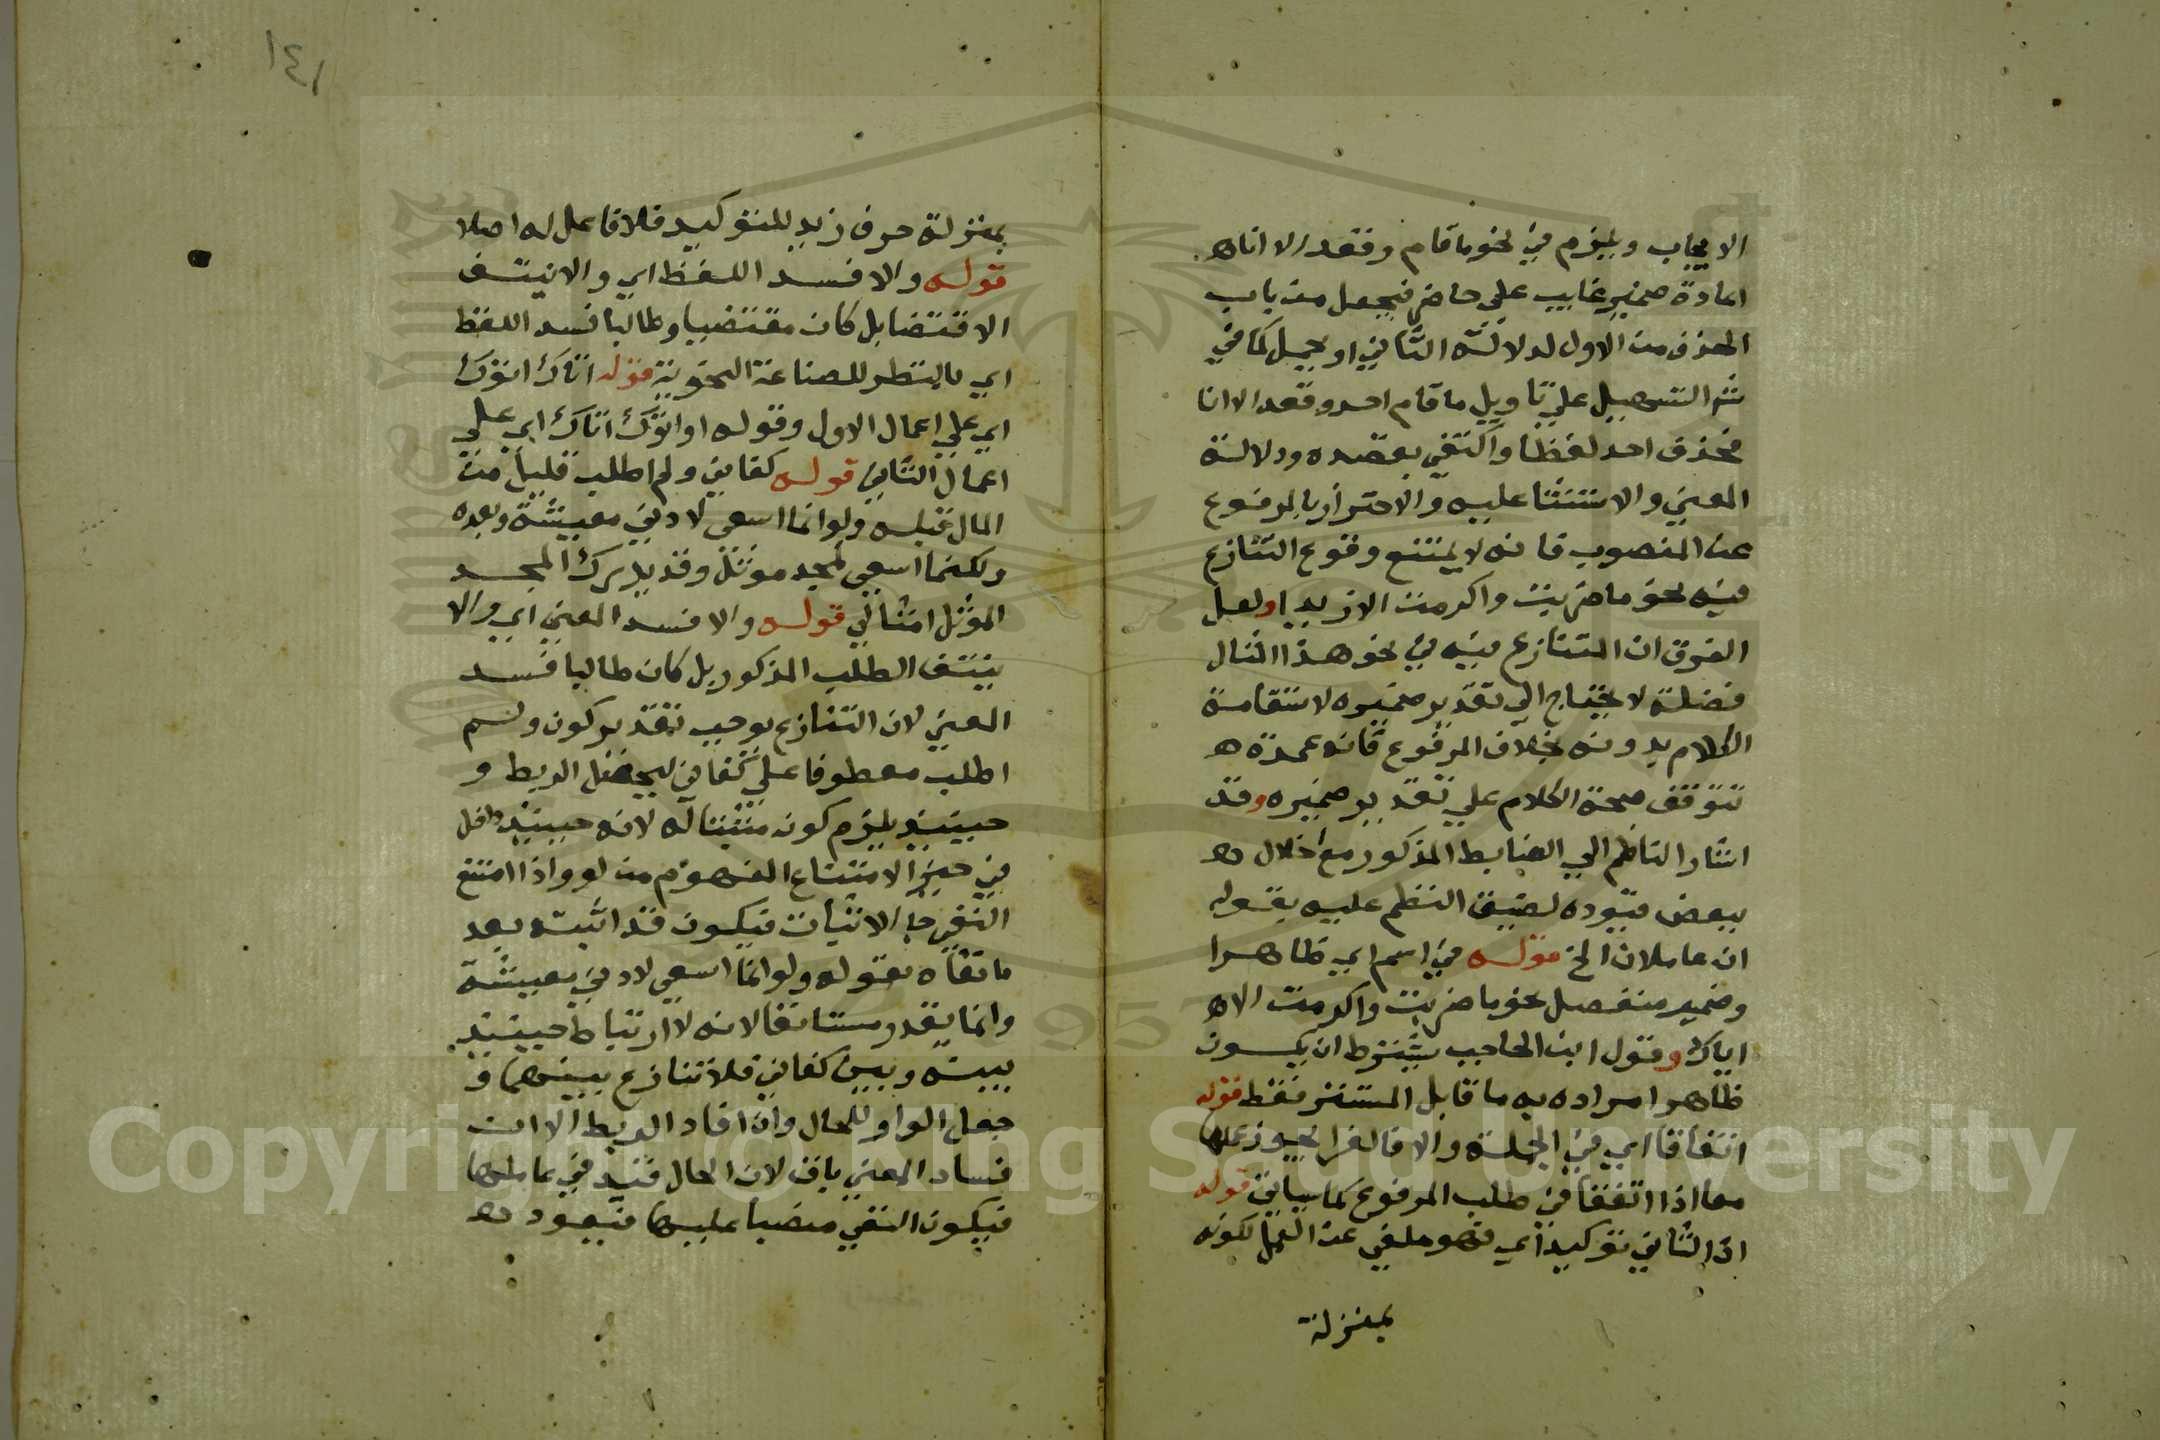 الايجاب ويلزم في نحو ما قام وقعد الا انا ه
اعادة ضمير غايب علي حاضر فيجعل من باب
الحذف من الاول لدلالة الثاني او يحمل كما في
شر التسهيل علي تاويل ما قام احد وقعد الا انا
فحذف احد لفظا واكتفي بقصده ودلالة
المعني والاستثنا عليه والاحتراز بالمرفوع
عن المنصوب فانه لا يمتنع وقوع التنازع
فيه نحو ما ضربت واكرمت الا زيدا ولعل
الفرق ان المتنازع فيه في نحو هذا المثال
فضلة لا يحتاج الي تقدير ضميره لاستقامة
الكلام بدونه بخلاف المرفوع فانه عمدة ه
تتوقف صحة الكلام علي تقدير ضميره وقد
اشار الناظم الي الضابط المذكور مع اخلال ه
ببعض قيوده لضيق النظم عليه بقوله
ان عاملان الخ قوله في اسم اي ظاهرا
وضمير منفصل نحو ما ضربت واكرمت الا ه
اياك وقول ابن الحاجب يشترط ان يكون
ظاهرا مراده به ما قابل المستتر فقط قوله
اتفاقا اي في الجملة والا فالفرا يجوز عملها
معا اذا اتفقا في طلب المرفوع كما سياتي قوله
اذ الثاني توكيد اي فهو ملغي عن العمل لكونه
بمنزلة
١٤١
بمنزلة حرف زيد للتوكيد فلا فاعل له اصلا
قوله والا فسد اللفظ اي والا ينتف
الاقتضا بل كان مقتضيا وطالبا فسد اللفظ
اي بالنظر للصناعة النحوية قوله اتاك اتوك
اي علي اعمال الاول وقوله او اتوك اتاك اي علي
اعمال الثاني قوله كفاني ولم اطلب قليل من
المال قبله ولو انما اسعي لادني معيشة وبعده
ولكنما اسعي لمجد موثل وقد يدرك المجد
الموثل امثالي قوله والا فسد المعني اي والا
ينتف الطلب المذكور بل كان طالبا فسد
المعني لان التنازع يوجب تقدير كون ولم
اطلب معطوفا علي كفاني ليحصل الربط و
حينيذ يلزم كونه مثبتا له لانه حينيذ داخل
في حيز الامتناع المفهوم من لو واذا امتنع
النفي جا الاثبات فيكون قد اثبت بعد
ما نفاه بقوله ولو انما اسعي لادني معيشة
وانما يقدر مستانفا لانه لا ارتباط حينيذ
بينه وبين كفاني فلا تنازع بينهما و
جعل الواو للحال وان افاد الربط الا ان
فساد المعني باق لان الحال قيد في عاملها
فيكون النفي منصبا عليها فيعود ه